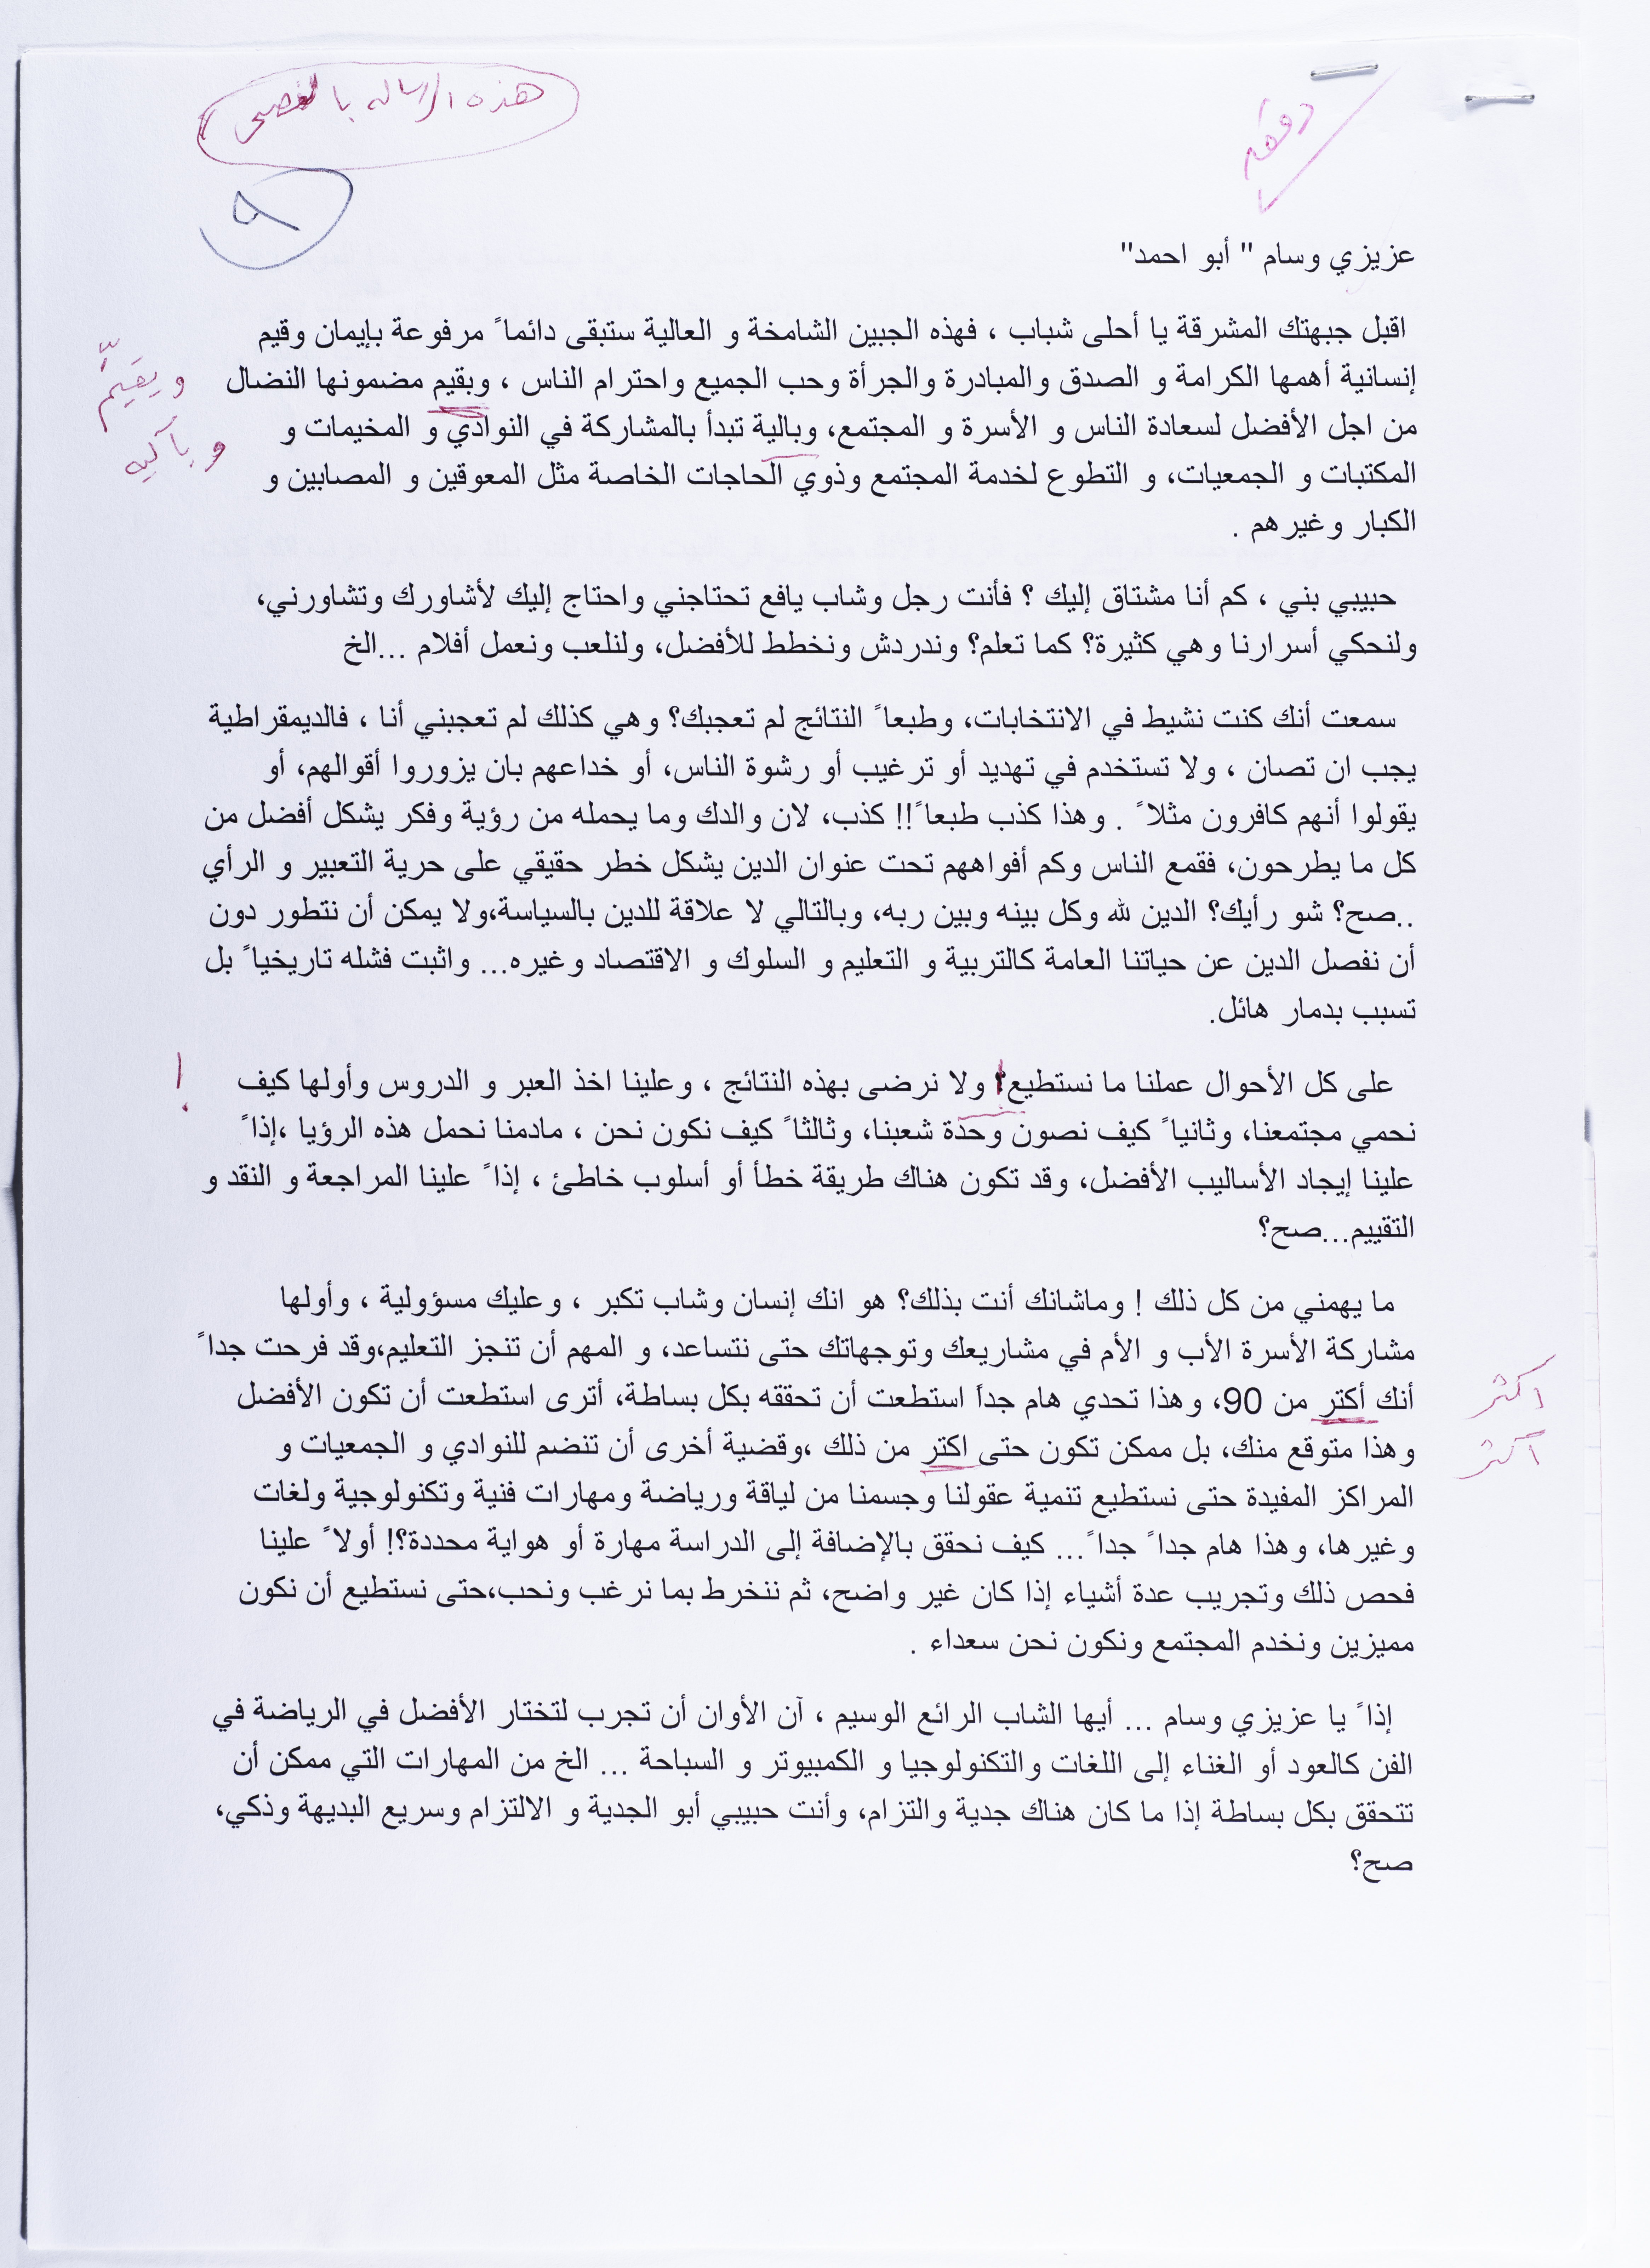 هذه الرسالة بالفصحى
دققه
٩
عزيزي وسام " أبو احمد"
اقبل جبهتك المشرقة يا أحلى شباب ، فهذه الجبين الشامخة و العالية ستبقى دائماً مرفوعة بإيمان وقيم
إنسانية أهمها الكرامة و الصدق والمبادرة والجرأة وحب الجميع واحترام الناس ، وبقيم مضمونها النضال
ويقيّم
من اجل الأفضل لسعادة الناس و الأسرة و المجتمع، وبالية تبدأ بالمشاركة في النوادي و المخيمات و
وبآليه
المكتبات و الجمعيات، و التطوع لخدمة المجتمع وذوي الحاجات الخاصة مثل المعوقين و المصابين و
الكبار وغيرهم .
حبيبي بني ، كم أنا مشتاق إليك ؟ فأنت رجل وشاب يافع تحتاجني واحتاج إليك لأشاورك وتشاورني،
ولنحكي أسرارنا وهي كثيرة؟ كما تعلم؟ وندردش ونخطط للأفضل، ولنلعب ونعمل أفلام ...الخ
سمعت أنك كنت نشيط في الانتخابات، وطبعاً النتائج لم تعجبك؟ وهي كذلك لم تعجبني أنا ، فالديمقراطية
يجب ان تصان ، ولا تستخدم في تهديد أو ترغيب أو رشوة الناس، أو خداعهم بان يزوروا أقوالهم، أو
يقولوا أنهم كافرون مثلاً . وهذا كذب طبعاً!! كذب، لان والدك وما يحمله من رؤية وفكر يشكل أفضل من
كل ما يطرحون، فقمع الناس وكم أفواههم تحت عنوان الدين يشكل خطر حقيقي على حرية التعبير و الرأي
..صح؟ شو رأيك؟ الدين لله وكل بينه وبين ربه، وبالتالي لا علاقة للدين بالسياسة،ولا يمكن أن نتطور دون
أن نفصل الدين عن حياتنا العامة كالتربية و التعليم و السلوك و الاقتصاد وغيره... واثبت فشله تاريخياً بل
تسبب بدمار هائل.
على كل الأحوال عملنا ما نستطيع! ولا نرضى بهذه النتائج ، وعلينا اخذ العبر و الدروس وأولها كيف
!
نحمي مجتمعنا، وثانياً كيف نصون وحدة شعبنا، وثالثاً كيف نكون نحن ، مادمنا نحمل هذه الرؤيا ،إذاً
علينا إيجاد الأساليب الأفضل، وقد تكون هناك طريقة خطأ أو أسلوب خاطئ ، إذاً علينا المراجعة و النقد و
التقييم...صح؟
ما يهمني من كل ذلك ! وماشانك أنت بذلك؟ هو انك إنسان وشاب تكبر ، وعليك مسؤولية ، وأولها
مشاركة الأسرة الأب و الأم في مشاريعك وتوجهاتك حتى نتساعد، و المهم أن تنجز التعليم،وقد فرحت جداً
أنك أكتر من 90، وهذا تحدي هام جداً استطعت أن تحققه بكل بساطة، أترى استطعت أن تكون الأفضل
اكثر
وهذا متوقع منك، بل ممكن تكون حتى اكتر من ذلك ،وقضية أخرى أن تنضم للنوادي و الجمعيات و
اكثر
المراكز المفيدة حتى نستطيع تنمية عقولنا وجسمنا من لياقة ورياضة ومهارات فنية وتكنولوجية ولغات
وغيرها، وهذا هام جداً جداً... كيف نحقق بالإضافة إلى الدراسة مهارة أو هواية محددة؟! أولاً علينا
فحص ذلك وتجريب عدة أشياء إذا كان غير واضح، ثم ننخرط بما نرغب ونحب،حتى نستطيع أن نكون
مميزين ونخدم المجتمع ونكون نحن سعداء .
إذاً يا عزيزي وسام ... أيها الشاب الرائع الوسيم ، آن الأوان أن تجرب لتختار الأفضل في الرياضة في
الفن كالعود أو الغناء إلى اللغات والتكنولوجيا و الكمبيوتر و السباحة ... الخ من المهارات التي ممكن أن
تتحقق بكل بساطة إذا ما كان هناك جدية والتزام، وأنت حبيبي أبو الجدية و الالتزام وسريع البديهة وذكي،
صح؟